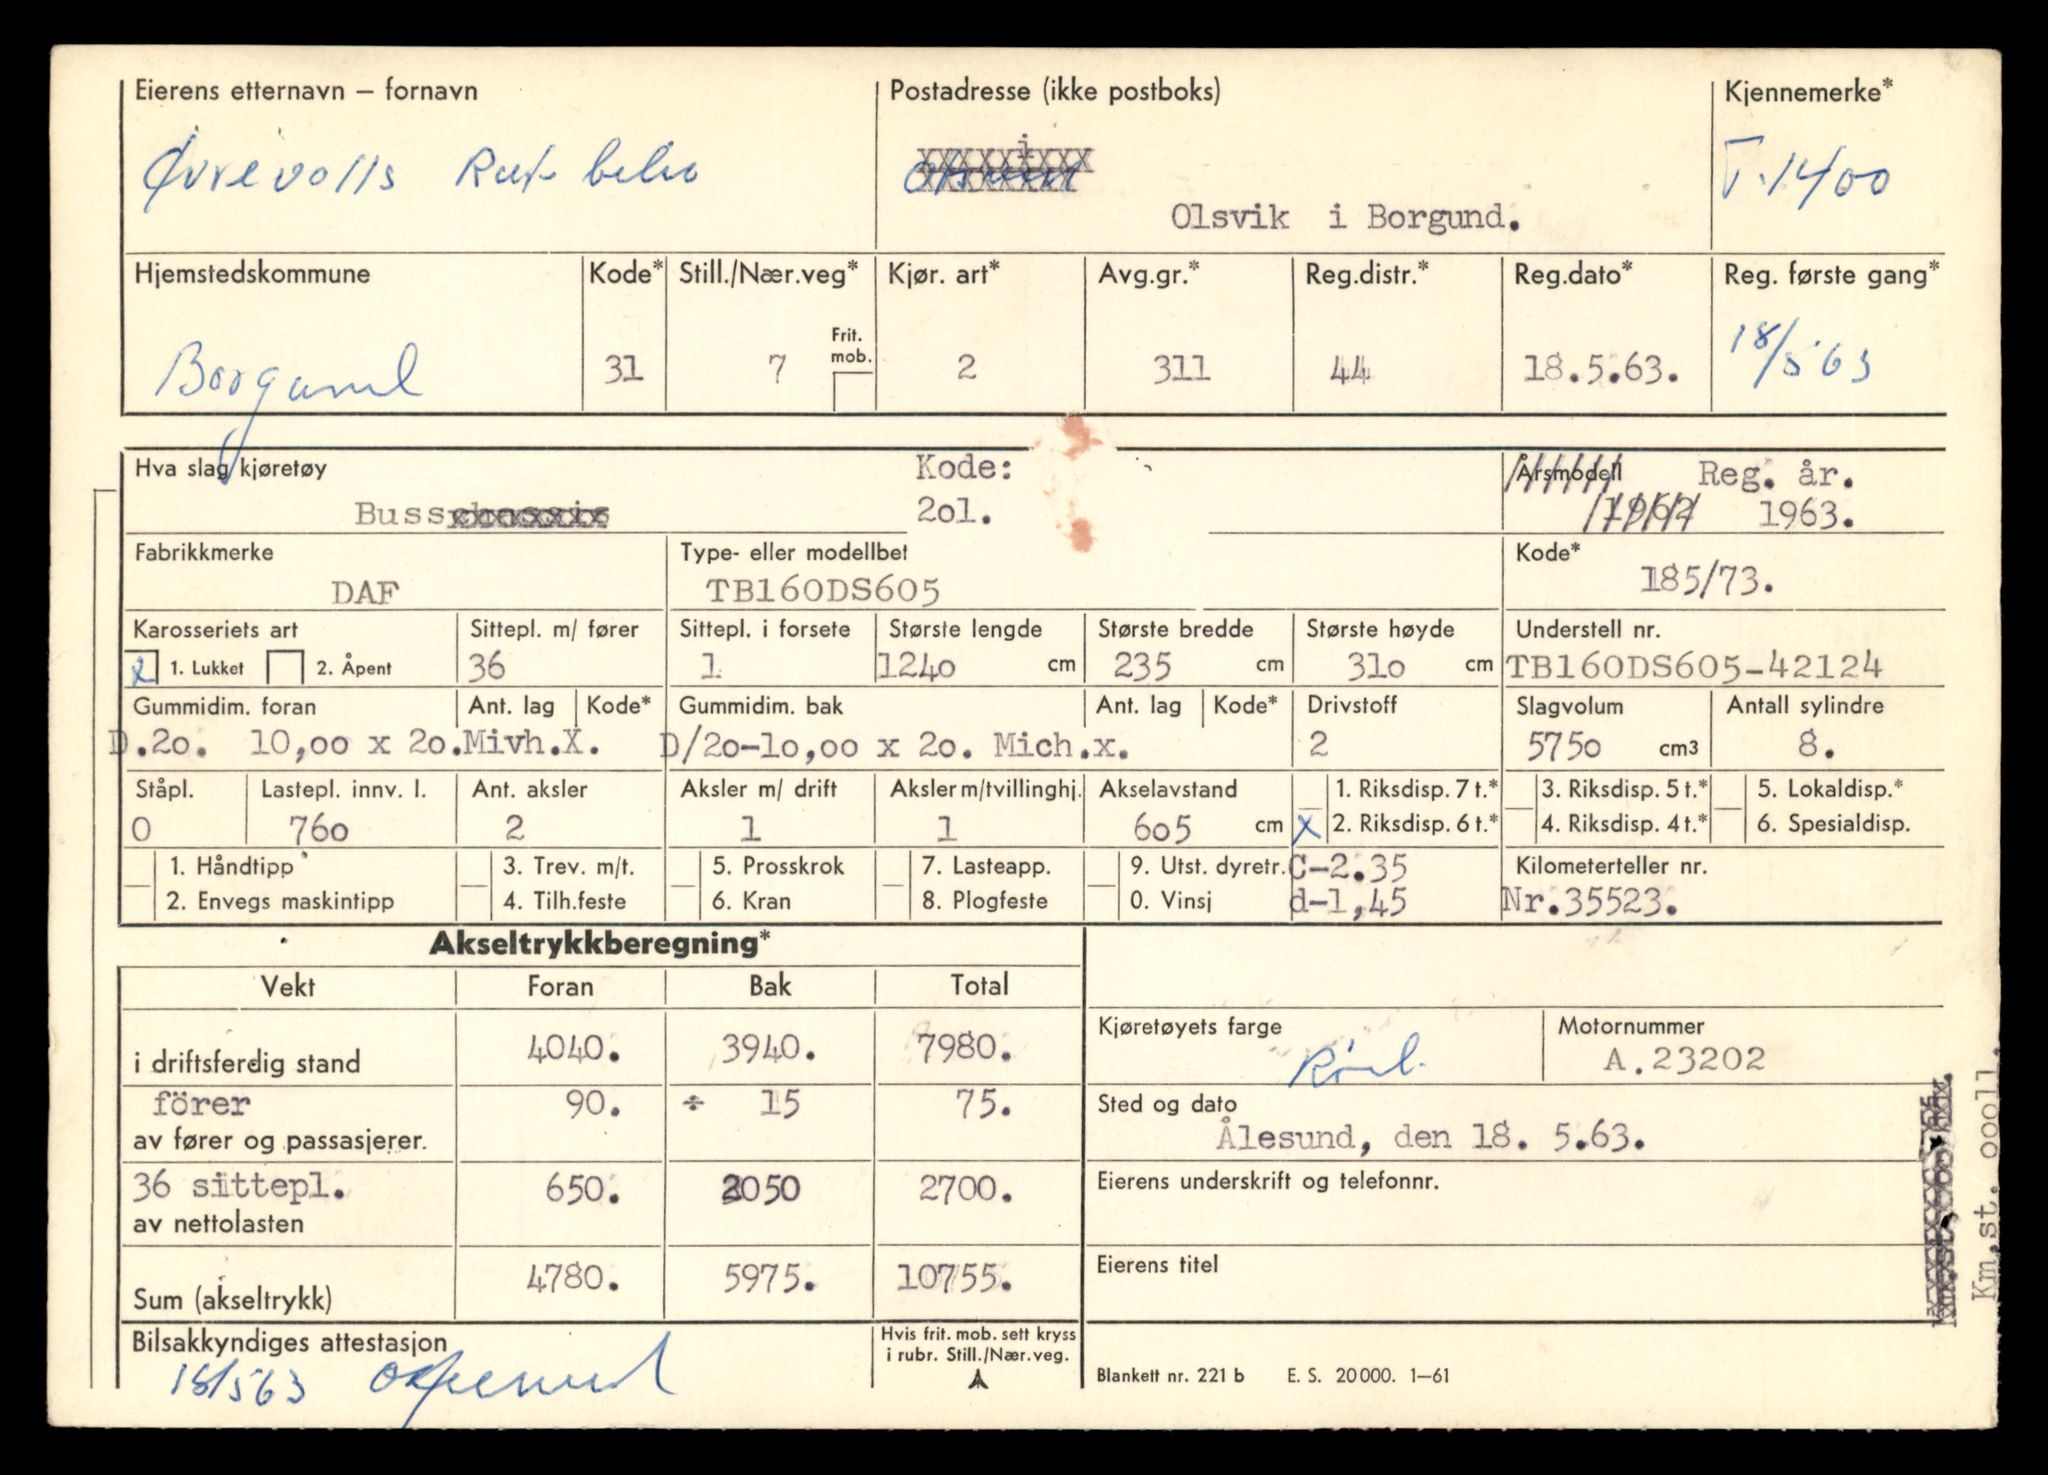 Eierens etternavn – fornavn Postadresse (ikke postboks) Kjennemerke*
Øvrevolls Rutebilo i T-1400
Olsvik i Borgund.
Hjemstedskommune Kode* Still./Nær.veg* Kjør. art* Avg.gr.* Reg.distr.* Reg.dato* Reg. første gang*
Frit. mob.
Borgund 31 7 2 311 44 18.5.63. 18/5 63
Hva slag kjøretøy Kode: Årsmodell Reg. år.
Busschassis 2o1. 1962 1963.
Fabrikkmerke Type- eller modellbet Kode*
DAF TB160DS605 185/73.
Karosseriets art Sittepl. m/ fører Sittepl. i forsete Største lengde Største bredde Største høyde Understell nr.
x 1. Lukket 2. Åpent 36 1 124o cm 235 cm 31o cm TB160DS605-42124
Gummidim. foran Ant. lag Kode* Gummidim. bak Ant. lag Kode* Drivstoff Slagvolum Antall sylindre
D.2o. 10,oo x 2o.Mivh.X. D/2o-1o,oo x 2o. Mich.x. 2 575o cm3 8.
Ståpl. Lastepl. innv. l. Ant. aksler Aksler m/ drift Aksler m/tvillinghj. Akselavstand 1. Riksdisp. 7 t.* 3. Riksdisp. 5 t.* 5. Lokaldisp.*
0 76o 2 1 1 6o5 cm x 2. Riksdisp. 6 t.* 4. Riksdisp. 4 t.* 6. Spesialdisp.
1. Håndtipp 3. Trev. m/t. 5. Prosskrok 7. Lasteapp. 9. Utst. dyretr. C-2.35 Kilometerteller nr.
2. Envegs maskintipp 4. Tilh.feste 6. Kran 8. Plogfeste 0. Vinsj d-1,45 Nr.35523.
Akseltrykkberegning*
Vekt Foran Bak Total
i driftsferdig stand 4040. 3940. 7980.
Kjøretøyets farge Motornummer
Rød. A.23202
förer 90. ÷ 15 75.
av fører og passasjerer.
Sted og dato
Ålesund, den 18. 5.63.
36 sittepl. 650. 2050 2700.
av nettolasten
Eierens underskrift og telefonnr.
Sum (akseltrykk) 4780. 5975. 10755.
Eierens titel
Bilsakkyndiges attestasjon Hvis frit. mob. sett kryss
i rubr. Still./Nær.veg.
18/5 63
Blankett nr. 221 b E. S. 20 000. 1–61
Km.st. oooll.